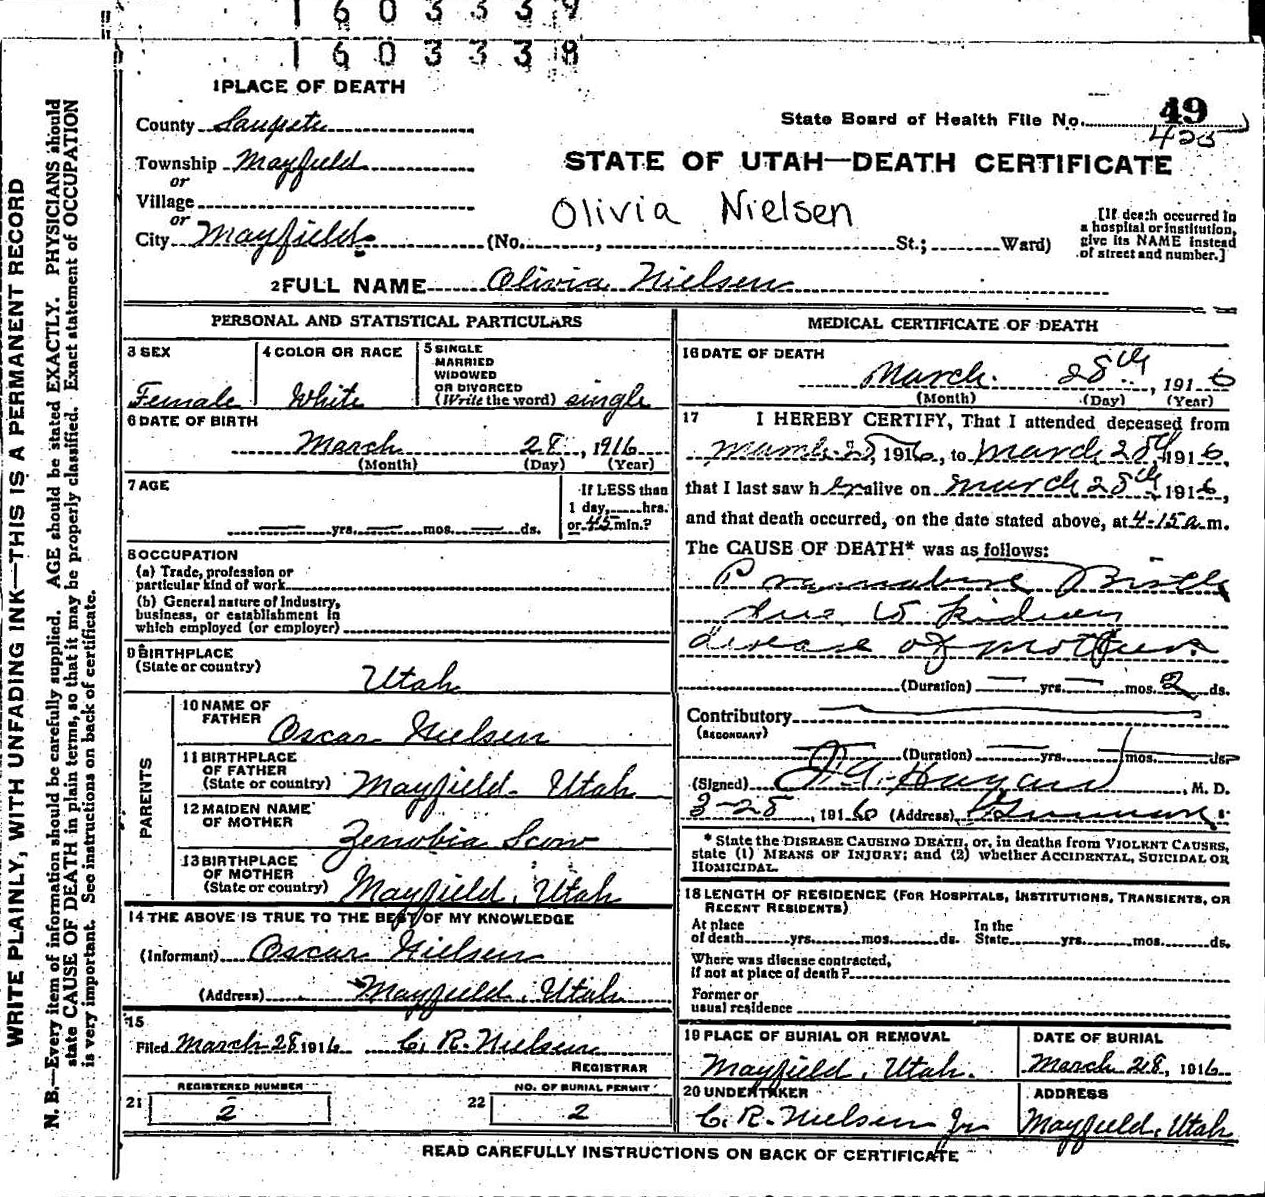 1603339
1603338
1 PLACE OF DEATH
County Sanpete
Township Mayfield
or
Village
or
City Mayfield (No. , St.; Ward)
State Board of Health File No. 49
425
STATE OF UTAH—DEATH CERTIFICATE
Olivia Nielsen
[If death occurred in
a hospital or institution,
give its NAME instead
of street and number.]
2 FULL NAME Olivia Nielsen
PERSONAL AND STATISTICAL PARTICULARS
3 SEX
Female
4 COLOR OR RACE
White
5 SINGLE
MARRIED
WIDOWED
OR DIVORCED
(Write the word) single
6 DATE OF BIRTH
March 28, 1916
(Month) (Day) (Year)
7 AGE
yrs. mos. ds.
If LESS than
1 day, hrs.
or 45 min.?
8 OCCUPATION
(a) Trade, profession or
particular kind of work
(b) General nature of Industry,
business, or establishment in
which employed (or employer)
9 BIRTHPLACE
(State or country)
Utah
PARENTS
10 NAME OF
FATHER
Oscar Nielsen
11 BIRTHPLACE
OF FATHER
(State or country) Mayfield Utah
12 MAIDEN NAME
OF MOTHER
Zenobia Scow
13 BIRTHPLACE
OF MOTHER
(State or country) Mayfield, Utah
14 THE ABOVE IS TRUE TO THE BEST OF MY KNOWLEDGE
(Informant) Oscar Nielsen
(Address) Mayfield, Utah
15
Filed March 28 1916 C. R. Nielsen
REGISTRAR
REGISTERED NUMBER
21 2
NO. OF BURIAL PERMIT
22 2
MEDICAL CERTIFICATE OF DEATH
16 DATE OF DEATH
March 28th, 1916
(Month) (Day) (Year)
17 I HEREBY CERTIFY, That I attended deceased from
March 28, 1916, to March 28th 1916,
that I last saw her alive on March 28th, 1916,
and that death occurred, on the date stated above, at 4-15 a m.
The CAUSE OF DEATH* was as follows:
Premature Birth
due to kidney
disease of mother
(Duration) yrs. mos. 2 ds.
Contributory
(SECONDARY)
(Duration) yrs. mos. ds.
(Signed) , M. D.
3-28, 1916 (Address)
* State the DISEASE CAUSING DEATH, or, in deaths from VIOLENT CAUSES,
state (1) MEANS OF INJURY; and (2) whether ACCIDENTAL, SUICIDAL OR
HOMICIDAL.
18 LENGTH OF RESIDENCE (FOR HOSPITALS, INSTITUTIONS, TRANSIENTS, OR
RECENT RESIDENTS)
At place
of death yrs. mos. ds.
In the
State yrs. mos. ds.
Where was disease contracted,
if not at place of death?
Former or
usual residence
19 PLACE OF BURIAL OR REMOVAL
Mayfield, Utah.
DATE OF BURIAL
March 28, 1916
20 UNDERTAKER
C. R. Nielsen Jr
ADDRESS
Mayfield, Utah
READ CAREFULLY INSTRUCTIONS ON BACK OF CERTIFICATE
WRITE PLAINLY, WITH UNFADING INK—THIS IS A PERMANENT RECORD
N. B.—Every item of information should be carefully supplied. AGE should be stated EXACTLY. PHYSICIANS should
state CAUSE OF DEATH in plain terms, so that it may be properly classified. Exact statement of OCCUPATION
is very important. See instructions on back of certificate.